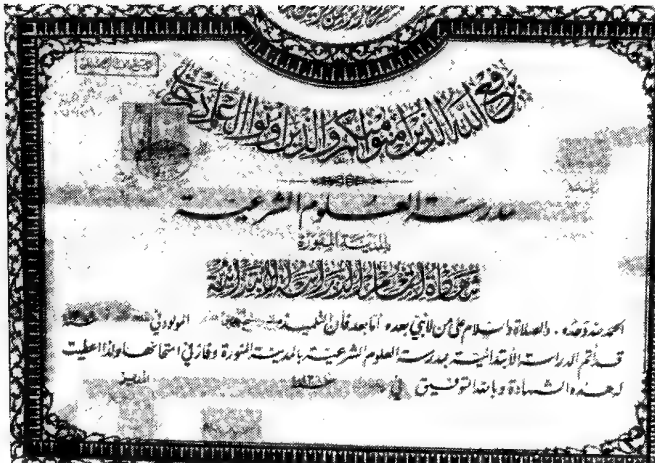 يرفع الله الذين آمنوا منكم والذين أوتوا العلم درجات
مدرسة العلوم الشرعية
بالمدينة المنورة
شهادة إتمام الدراسة الابتدائية
الحمد لله وحده . والصلاة والسلام على من لا نبي بعده أما بعد فأن التلميذ المولود في
قد أتم الدراسة الابتدائية بمدرسة العلوم الشرعية بالمدينة المنورة وفاز في امتحانها ولذا أعطيت
له هذه الشهادة وبالله التوفيق في
المدير